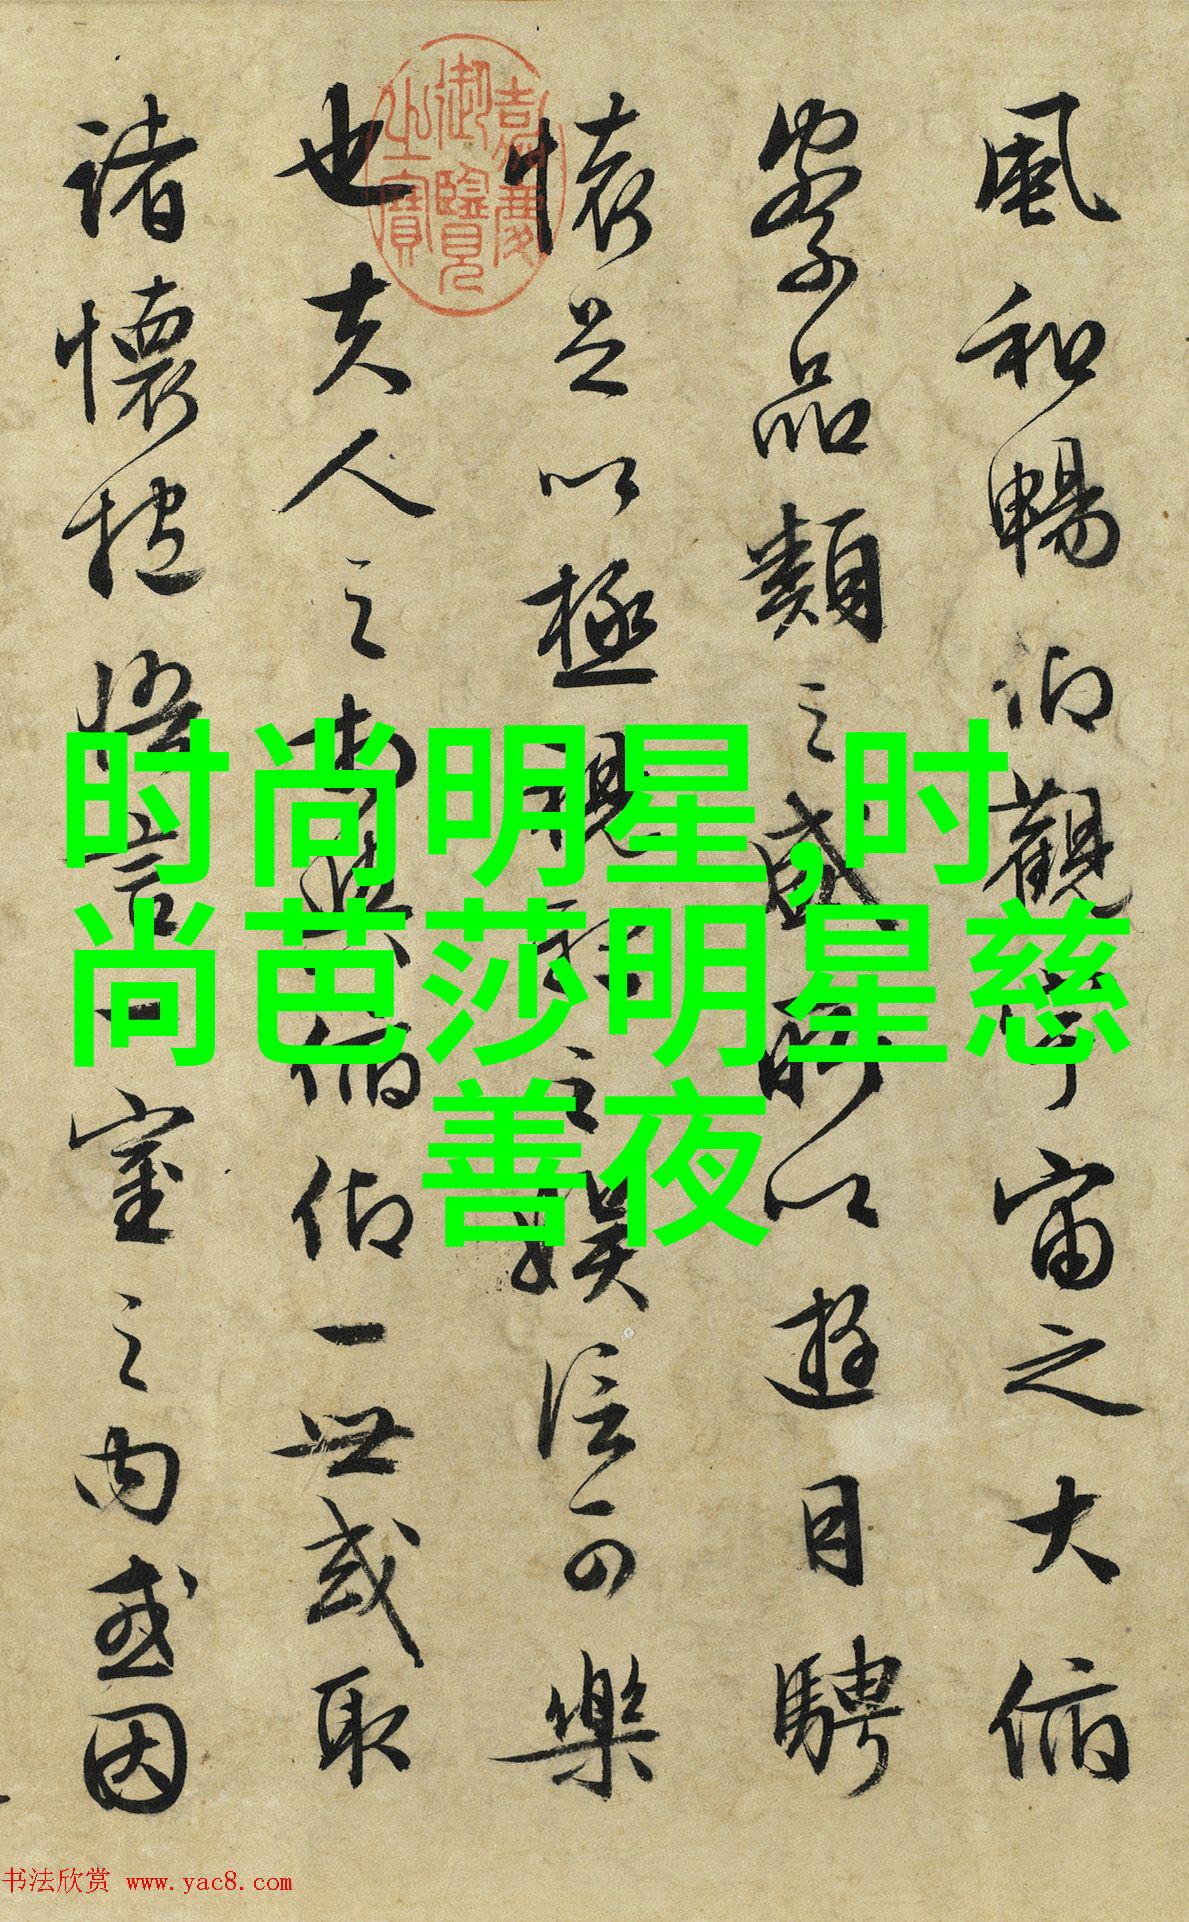 嘉慶
御覽
之寶
風和暢仰觀宇宙之大俯
察品類之盛所以遊目騁
懷足以極視聽之娛信可樂
也夫人之相與俯仰一世或取
諸懷抱悟言一室之内或因
时尚明星,时
尚芭莎明星慈
善夜
书法欣赏 www.yac8.com